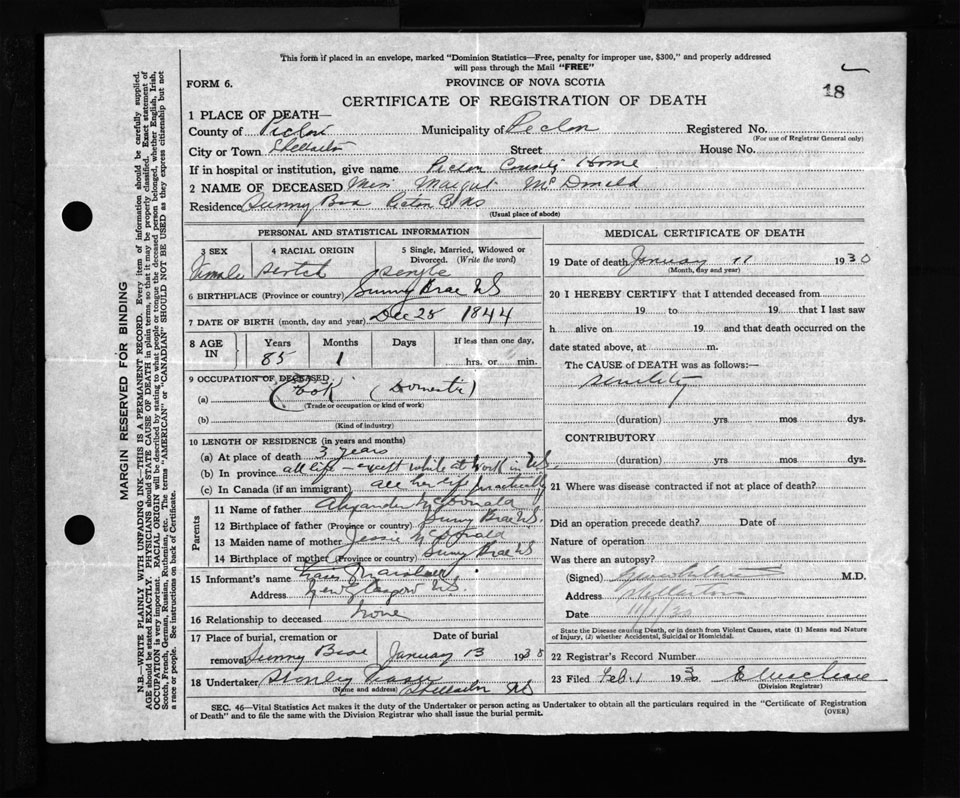 This form if placed in an envelope, marked "Dominion Statistics—Free, penalty for improper use, $300," and properly addressed
will pass through the Mail "FREE"
FORM 6.
PROVINCE OF NOVA SCOTIA
18
CERTIFICATE OF REGISTRATION OF DEATH
MARGIN RESERVED FOR BINDING
N.B.—WRITE PLAINLY WITH UNFADING INK—THIS IS A PERMANENT RECORD. Every item of information should be carefully supplied.
AGE should be stated EXACTLY. PHYSICIANS should STATE CAUSE OF DEATH in plain terms, so that it may be properly classified. Exact statement of
OCCUPATION is very important. RACIAL ORIGIN will be described by stating to what people or tongue the deceased person belonged, whether English, Irish,
Scotch, French, German, Russian, Ruthenian, etc. The terms "AMERICAN" or "CANADIAN" SHOULD NOT BE USED as they express citizenship but not
a race or people. See instructions on back of Certificate.
1 PLACE OF DEATH—
County of Pictou Municipality of Pictou Registered No.
(For use of Registrar General only)
City or Town Stellarton Street House No.
If in hospital or institution, give name Pictou County Home
2 NAME OF DECEASED Miss Margret McDonald
Residence Sunny Brae Pictou Co NS
(Usual place of abode)
PERSONAL AND STATISTICAL INFORMATION
3 SEX 4 RACIAL ORIGIN 5 Single, Married, Widowed or
Divorced. (Write the word)
Female Scotch Single
6 BIRTHPLACE (Province or country) Sunny Brae NS
7 DATE OF BIRTH (month, day and year) Dec 25 1844
8 AGE IN Years Months Days If less than one day,
85 1 hrs. or min.
9 OCCUPATION OF DECEASED
(a) Cook (Domestic)
(Trade or occupation or kind of work)
(b)
(Kind of industry)
10 LENGTH OF RESIDENCE (in years and months)
(a) At place of death 3 years
(b) In province all life - except while at work in US
(c) In Canada (if an immigrant) all her life practically
Parents
11 Name of father Alexander McDonald
12 Birthplace of father (Province or country) Sunny Brae NS.
13 Maiden name of mother Jessie McDonald
14 Birthplace of mother (Province or country) Sunny Brae NS
15 Informant's name
Address New Glasgow NS.
16 Relationship to deceased None
17 Place of burial, cremation or
removal Sunny Brae
Date of burial
January 13 1930
18 Undertaker Stanley
(Name and address) Stellarton NS
MEDICAL CERTIFICATE OF DEATH
19 Date of death January 11 1930
(Month, day and year)
20 I HEREBY CERTIFY that I attended deceased from
19 to 19 that I last saw
h alive on 19 and that death occurred on the
date stated above, at m.
The CAUSE OF DEATH was as follows:—
Senility
(duration) yrs mos dys.
CONTRIBUTORY
(duration) yrs mos dys.
21 Where was disease contracted if not at place of death?
Did an operation precede death? Date of
Nature of operation
Was there an autopsy?
(Signed) M.D.
Address Stellarton
Date 11/1/30
State the Disease causing Death, or in death from Violent Causes, state (1) Means and Nature
of Injury, (2) whether Accidental, Suicidal or Homicidal.
22 Registrar's Record Number
23 Filed Feb. 1 1930
(Division Registrar)
SEC. 46—Vital Statistics Act makes it the duty of the Undertaker or person acting as Undertaker to obtain all the particulars required in the "Certificate of Registration
of Death" and to file the same with the Division Registrar who shall issue the burial permit.
(OVER)